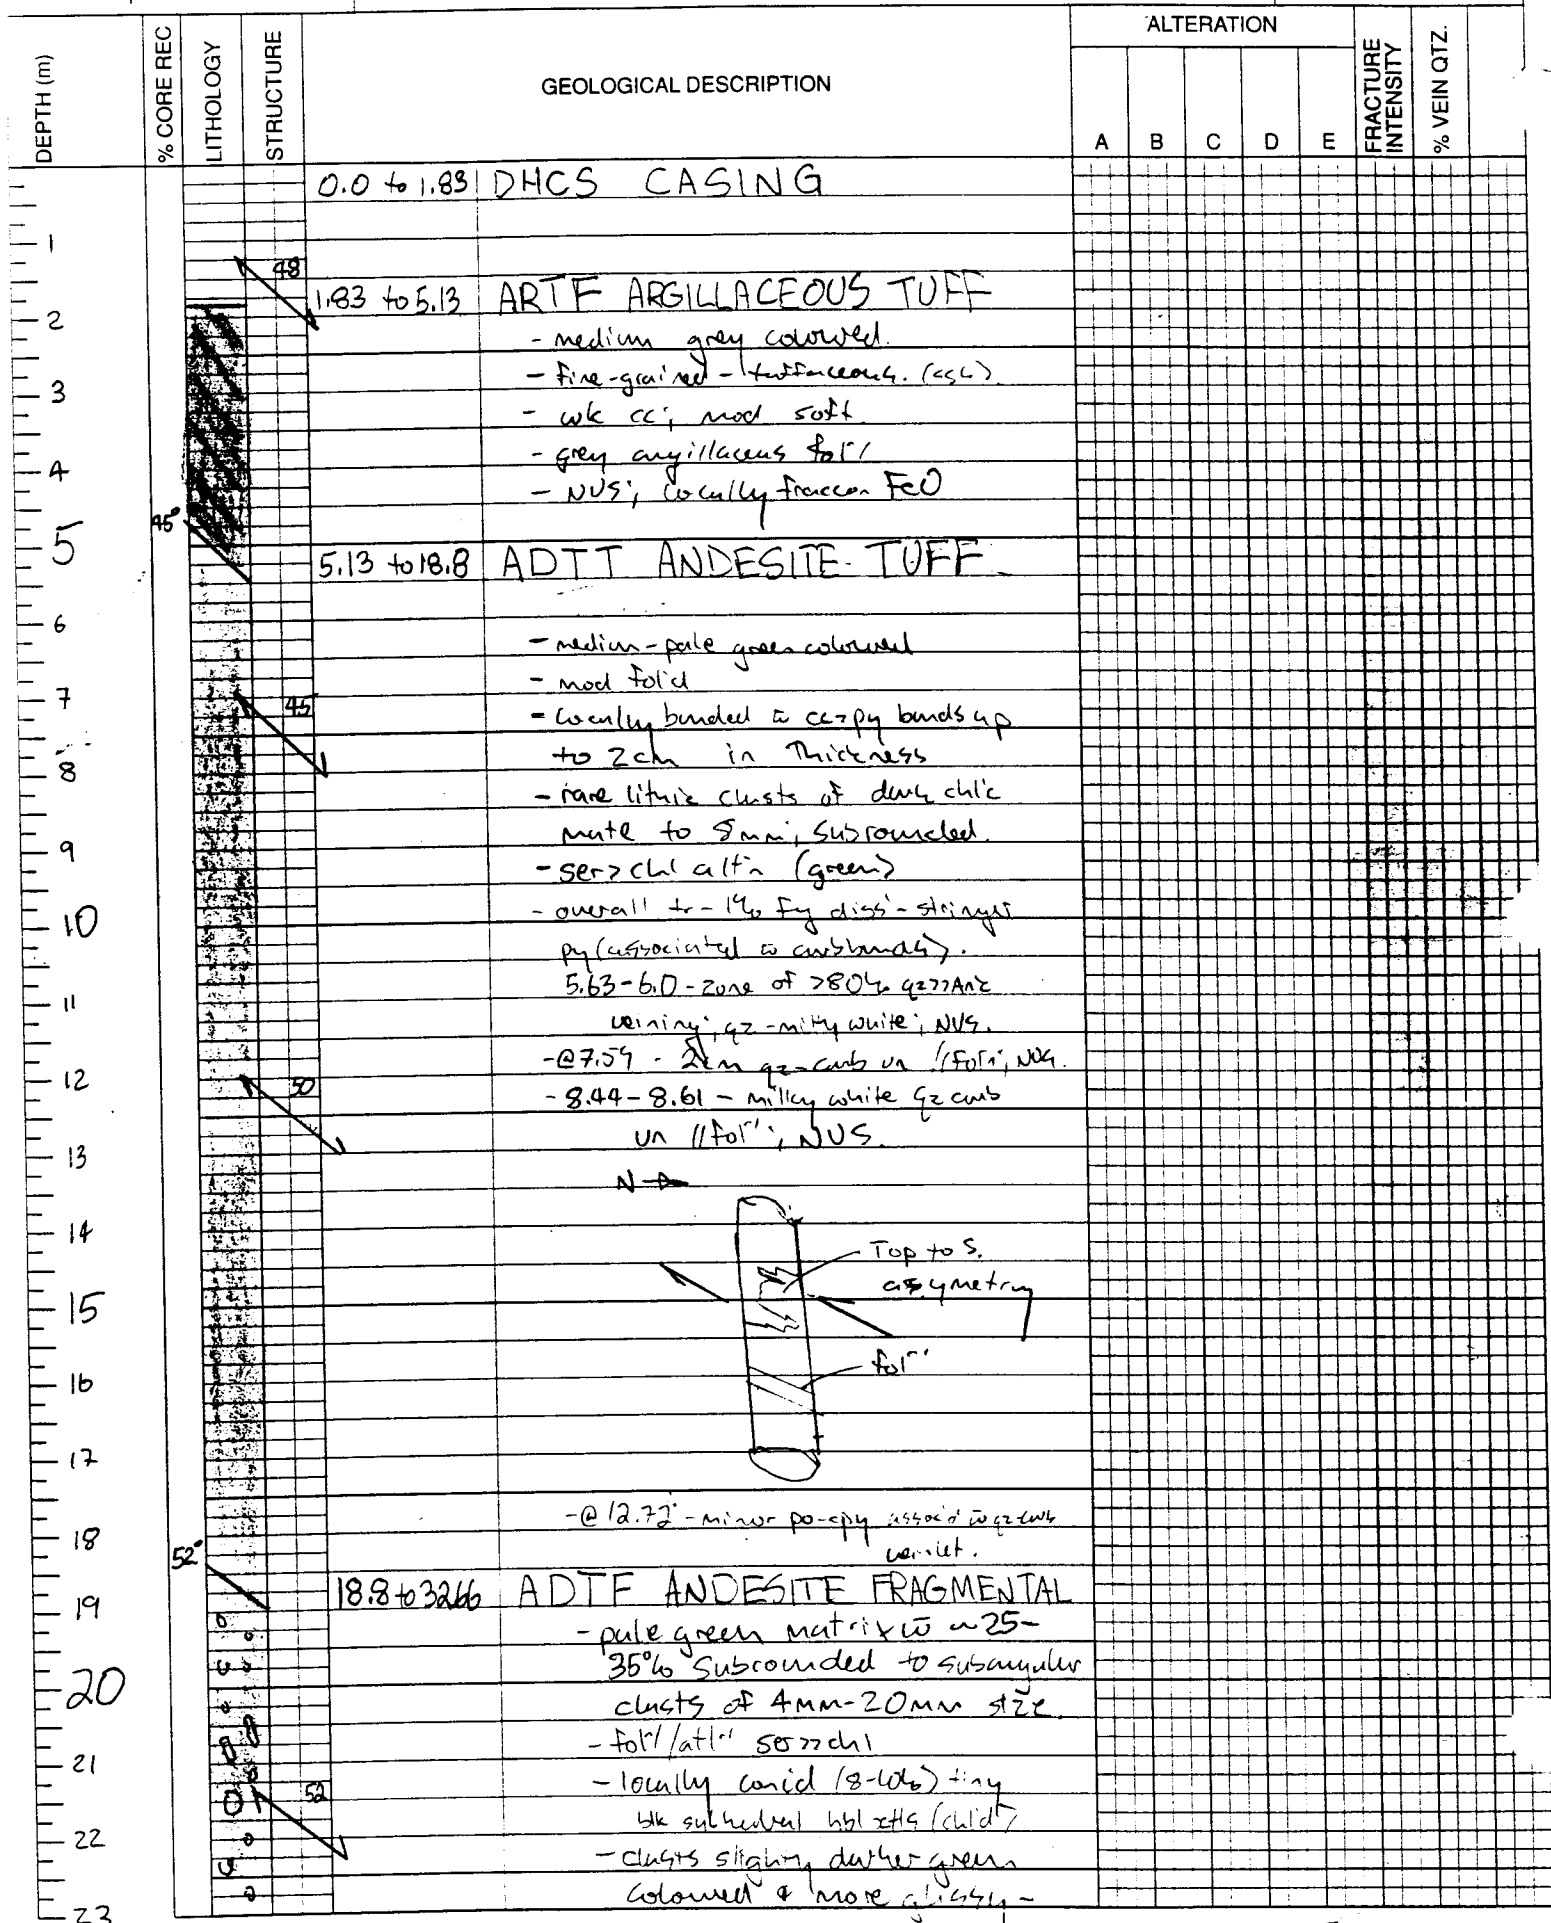 DEPTH (m)
% CORE REC
LITHOLOGY
STRUCTURE
GEOLOGICAL DESCRIPTION
ALTERATION
A B C D E
FRACTURE INTENSITY
% VEIN QTZ.
0.0 to 1.83 DHCS CASING
1
48
1.83 to 5.13 ARTF ARGILLACEOUS TUFF
2
- medium grey coloured.
- fine-grained - tuffaceous. (ash).
3
- wk cc; mod soft
- grey argillaceous fol'n
4
- NUS; locally frac con FeO
45°
5
5.13 to 18.8 ADTT ANDESITE TUFF
6
- medium-pale green coloured
- mod fol'd
7
45
- locally banded w cc-py bands up
to 2cm in thickness
8
- rare lithic clasts of dark chl'c
mate to 8mm; subrounded.
9
- ser>chl alt'n (green)
- overall tr-1% fg diss'-stringer
10
py (associated w carb bands).
5.63-6.0 - zone of >80% qz>>Ank
11
veining; qz-milky white; NVS.
-@7.59 - 2cm qz-carb vn //fol'n; NVS.
12
50
- 8.44-8.61 - milky white qz carb
vn //fol'n; NVS.
13
N
14
Top to S.
assymetry
15
fol'n
16
17
-@12.72 - minor po-cpy assoc'd w qz-carb
veinlet.
18
52°
18.8 to 32.66 ADTF ANDESITE FRAGMENTAL
19
- pale green matrix w ~25-
35% subrounded to subangular
20
clasts of 4mm-20mm size.
- fol'n/alt'n ser>>chl
21
- locally (8-10%) tiny
52
blk subhedral hbl xtls (chl'd)
22
- clasts slightly darker green
coloured & more glassy -
23